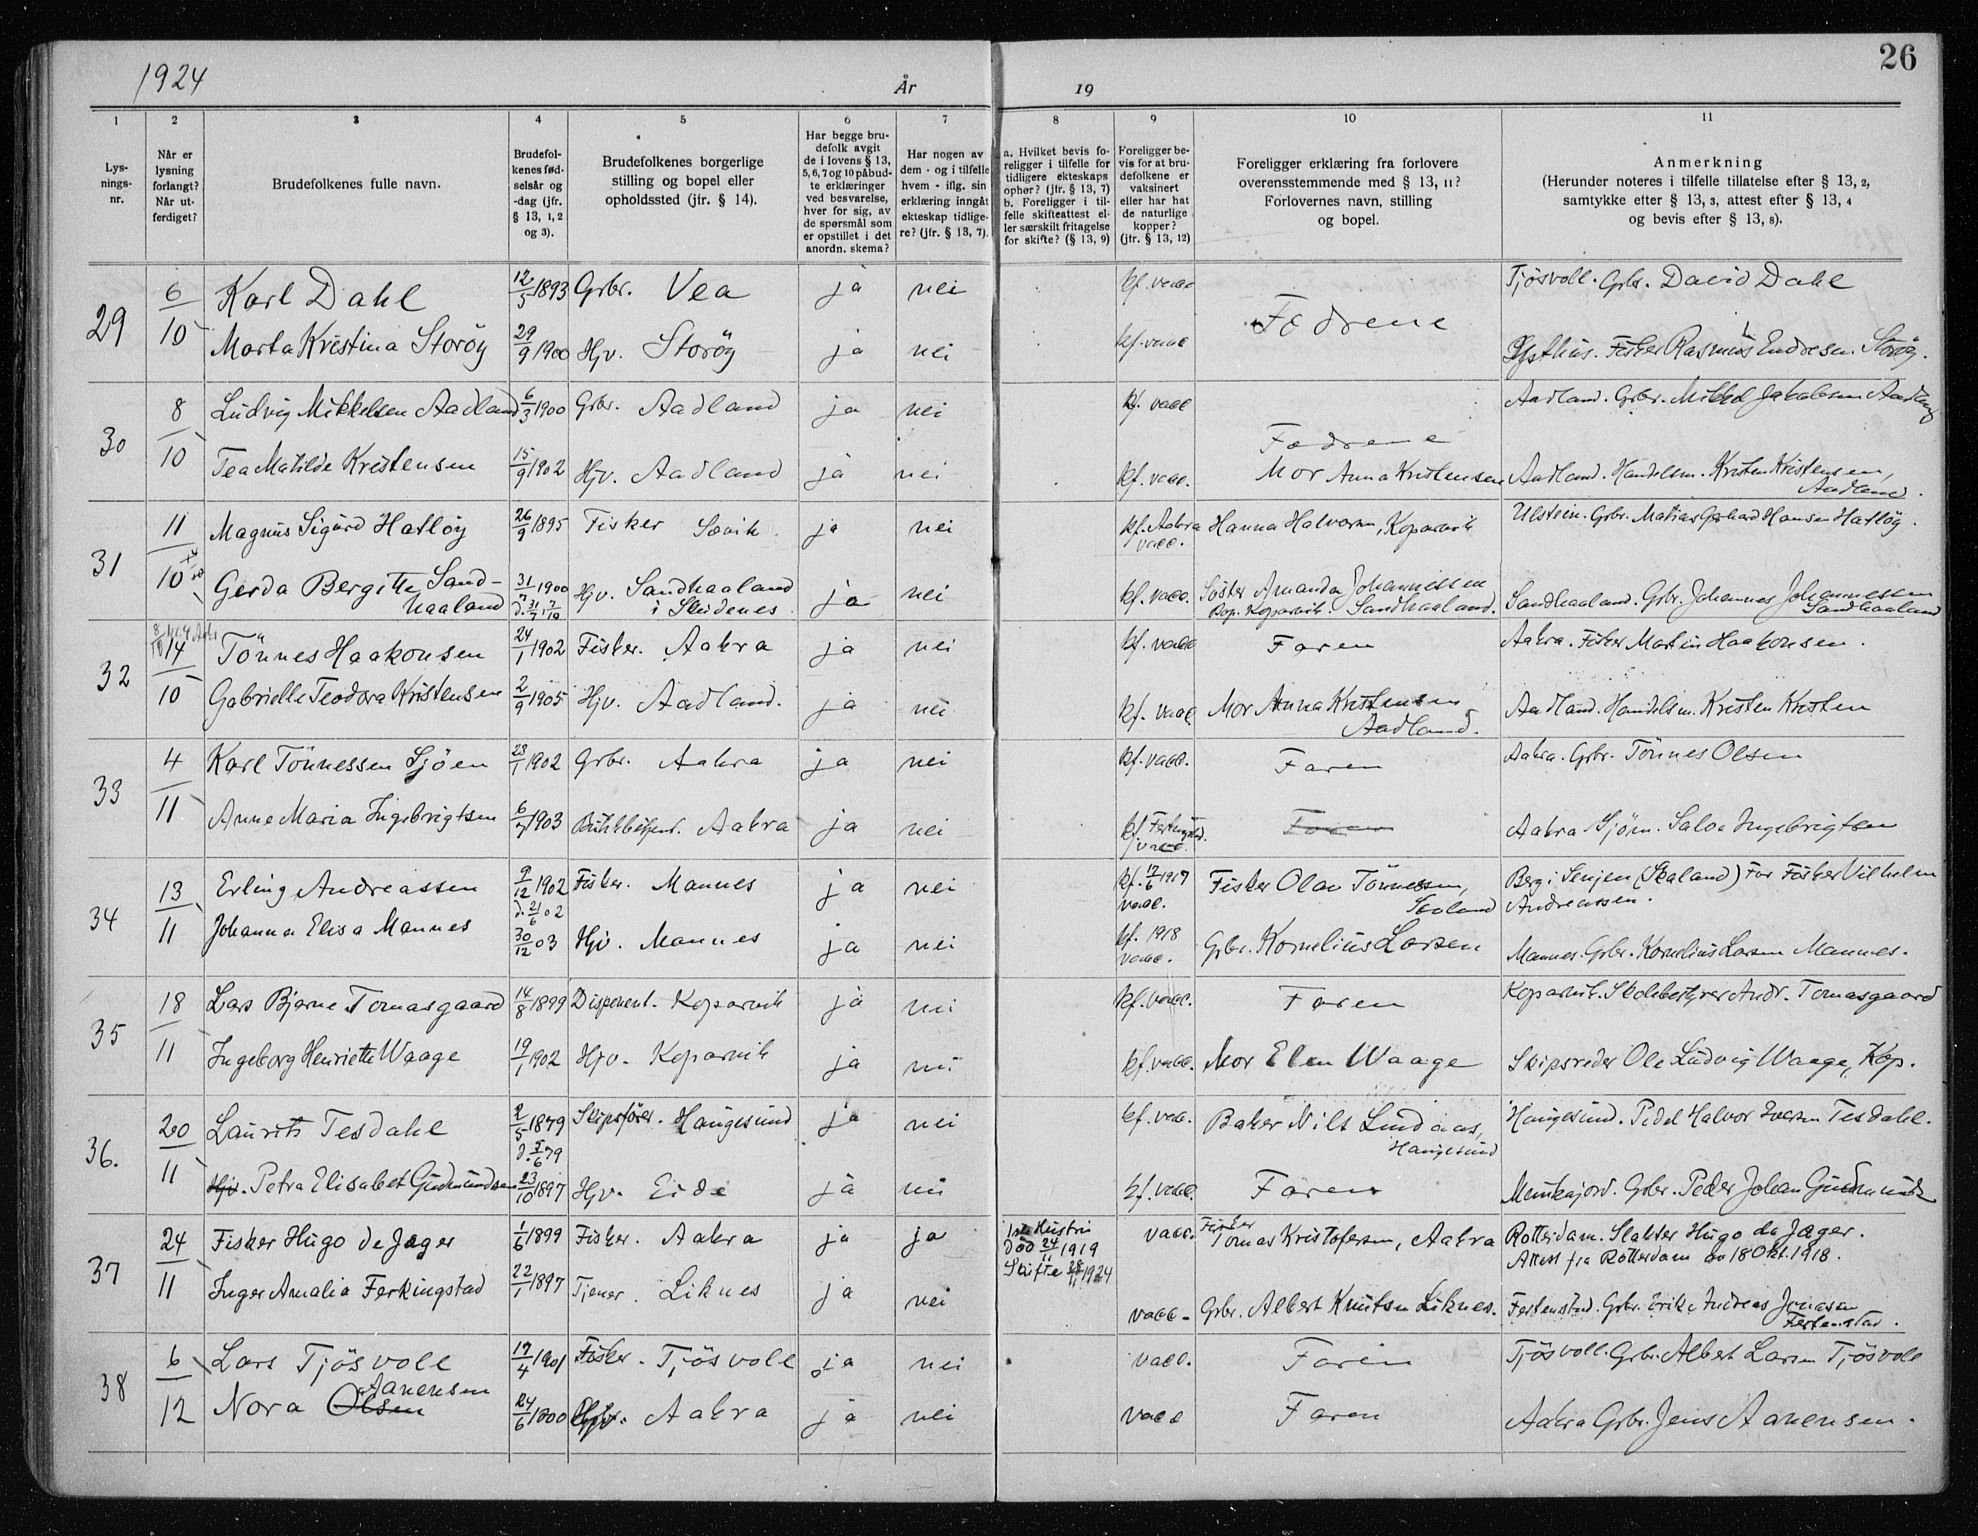 26
1924 År 19
1 2 3 4 5 6 7 8 9 10 11
Lysningsnr.
Når er lysning forlangt? Når utferdiget?
Brudefolkenes fulle navn.
Brudefolkenes fødselsår og -dag (jfr. § 13, 1, 2 og 3).
Brudefolkenes borgerlige stilling og bopel eller opholdssted (jfr. § 14).
Har begge brudefolk avgit de i lovens § 13, 5, 6, 7 og 10 påbudte erklæringer ved besvarelse, hver for sig, av de spørsmål som er opstillet i det anordn. skema?
Har nogen av dem - og i tilfelle hvem - iflg. sin erklæring inngåt ekteskap tidligere? (jfr. § 13, 7).
a. Hvilket bevis foreligger i tilfelle for tidligere ekteskaps ophør? (jfr. § 13, 7) b. Foreligger i tilfelle skifteattest eller særskilt fritagelse for skifte? (§ 13, 9)
Foreligger bevis for at brudefolkene er vaksinert eller har hat de naturlige kopper? (jfr. § 13, 12)
Foreligger erklæring fra forlovere overensstemmende med § 13, 11? Forlovernes navn, stilling og bopel.
Anmerkning (Herunder noteres i tilfelle tillatelse efter § 13, 2, samtykke efter § 13, 3, attest efter § 13, 4 og bevis efter § 13, 8).
29 6/10 Karl Dahl 12/5 1893 Grbr. Vea ja nei kf. vacc Fedrene Tjösvoll. Grbr. David Dahl
Marta Kristina Storöy 29/9 1900 Hjv. Storöy ja nei kf. vacc Fisker Rasmus Endresen Storöy.
30 8/10 Ludvig Mikkelsen Aadland 6/3 1900 Grbr. Aadland ja nei kf. vacc Fedrene Aadland. Grbr. Mikkel Jakobsen Aadland
Tea Matilde Kristensen 15/9 1902 Hjv. Aadland ja nei kf. vacc. Mor Anna Kristensen Aadland. Handelsm. Kristen Kristensen, Aadland.
31 11/10 Magnus Sigurd Hatlöy 26/9 1895 Fisker Sævik ja nei kf. Aakra vacc. Hanna Halvorsen, Koparvik Ulstein. Grbr. Matias Gerhard Hansen Hatlöy.
Gerda Bergitte Sandhaaland 31/7 1900 Hjv. Sandhaaland i Skidenes ja nei kf. vacc. Söster Amanda Johannessen Sandhaaland. Sandhaaland. Grbr. Johannes Johannessen Sandhaaland
32 14/10 Tönnes Haakonsen 24/1 1902 Fisker. Aakra ja nei kf. vacc Faren Aakra. Fisker Martin Haakonsen.
Gabrielle Teodora Kristensen 2/9 1905 Hjv. Aadland. ja nei kf. vacc Mor Anna Kristensen Aadland. Aadland. Handelsm. Kristen Kristen
33 4/11 Karl Tönnessen Sjöen 23/1 1902 Grbr. Aakra ja nei kf. vacc. Faren Aakra. Grbr. Tönnes Olsen
Anne Maria Ingebrigtsen 6/7 1903 Butikkbetjent. Aakra ja nei kf. vacc. Faren Aakra Sjöm. Salve Ingebrigtsen
34 13/11 Erling Andreassen 9/12 1902 d. 21/6 02 Fisker. Mannes ja nei kf. 17/6 1917 vacc. Fisker Olav Tönnessen, Berg i Senjen (Skaland) Far Fisker Vilhelm Andreassen.
Johanna Elisa Mannes 30/12 03 Hjv. Mannes ja nei kf. 1918 vacc. Grbr. Kornelius Larsen Mannes. Grbr. Kornelius Larsen Mannes.
35 18/11 Lars Bjarne Tomasgaard 14/8 1899 Disponent. Koparvik ja nei kf. vacc. Faren Koparvik. Skolebestyrer Andr. Tomasgaard
Ingeborg Henriette Waage 19/1 1902 Hjv. Koparvik ja nei kf. vacc. Mor Elen Waage Skipsreder Ole Ludvig Waage, Kop.
36. 20/11 Laurits Tesdahl 2/5 1879 d. 5/6 79 Skipsförer. Haugesund ja nei kf. vacc. Baker Nils Lindaas, Haugesund Haugesund. Pedel Halvor Iversen Tesdahl.
Hjv. Petra Elisabet Gudmundsen 23/10 1897 Hjv. Eide ja nei kf. vacc. Faren Munkajord. Grbr. Peder Johan Gudmunds
37 24/11 Fisker Hugo de Jager 1/6 1899 Fisker. Aakra ja ja 1ste Hustru död 24/11 1919 Skifte 28/11 1924 vacc. Fisker Tomas Kristofersen, Aakra Rotterdam. Slakter Hugo de Jager. Attest fra Rotterdam av 18 Okt. 1918.
Inger Amalia Ferkingstad 22/1 1897 Tjener. Liknes ja nei vacc. Grbr. Albert Knutsen Liknes. Grbr. Erik Andreas Jonasen
38 6/12 Lars Tjösvoll 17/4 1901 Fisker. Tjösvoll ja nei vacc. Faren Tjösvoll. Grbr. Albert Larsen Tjösvoll
Nora Olsen Aanensen 24/6 1900 Hjv. Aakra ja nei vacc Faren Aakra Grbr. Jens Aanensen.